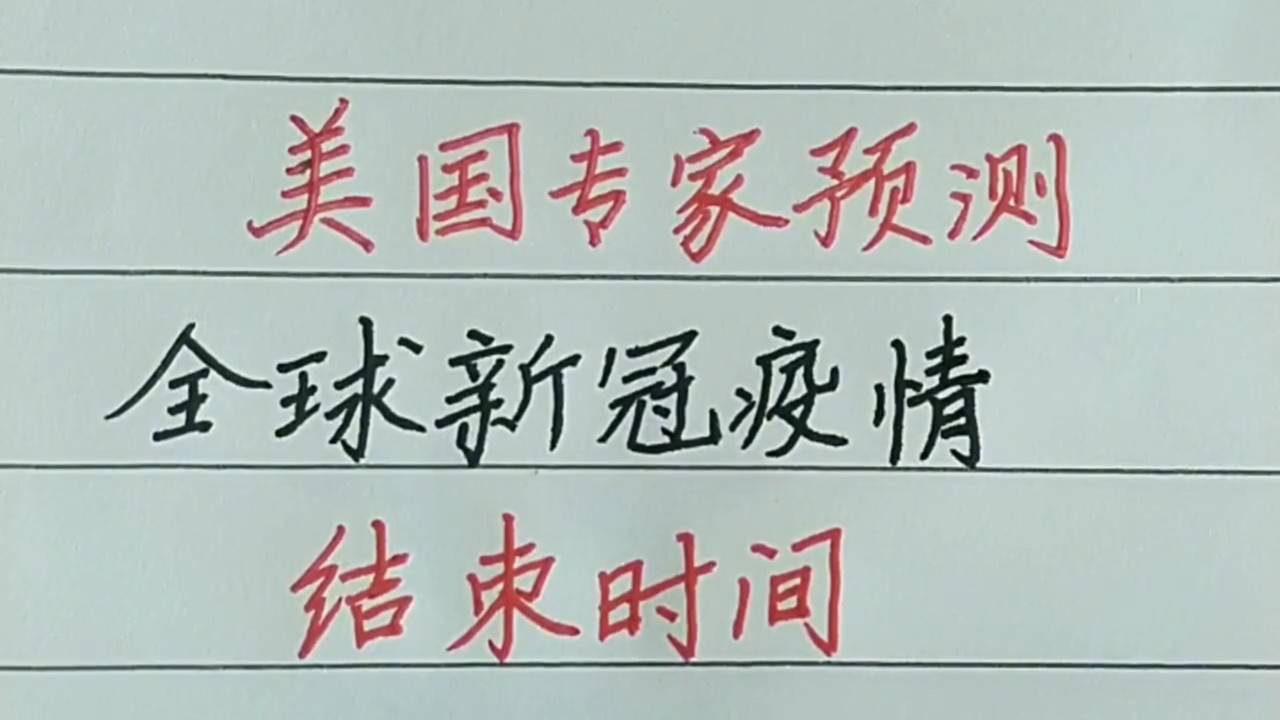 美国专家预测
全球新冠疫情
结束时间